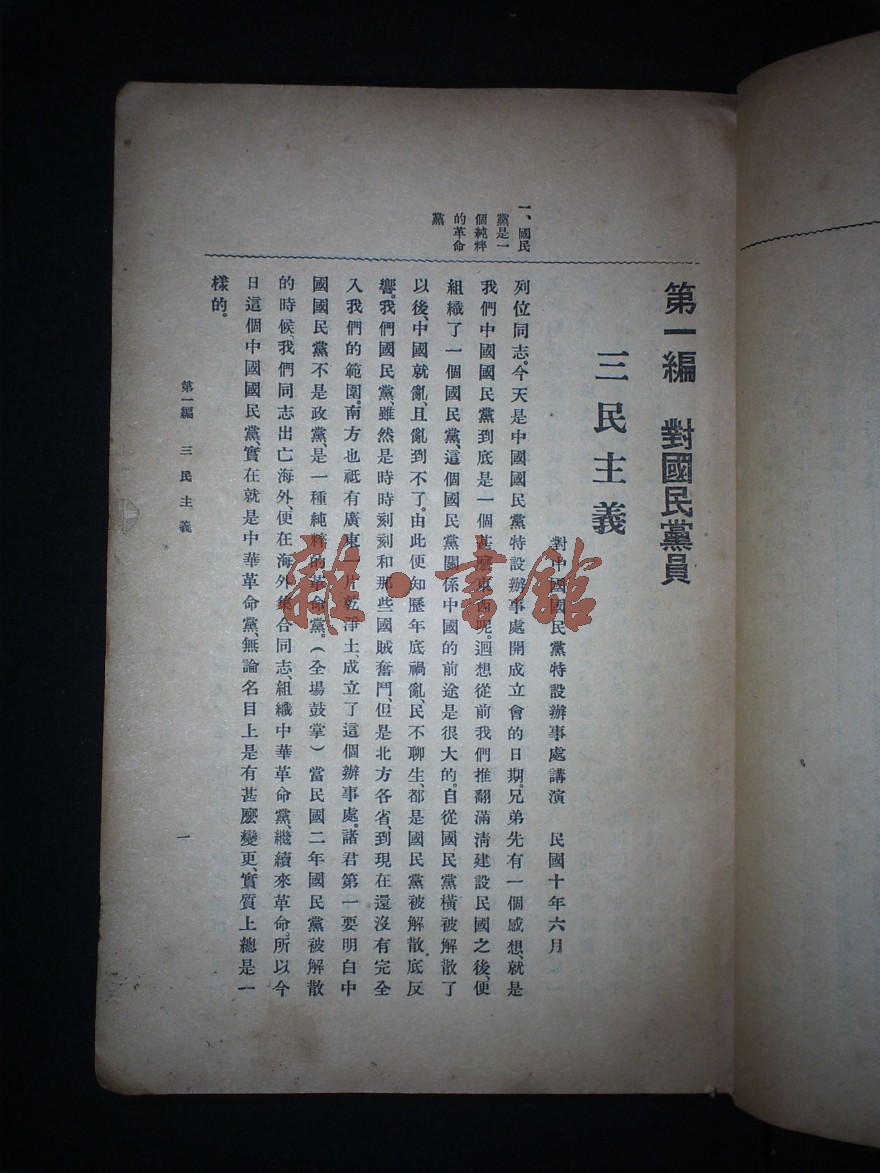 第一編　對國民黨員
三民主義
對中國國民黨特設辦事處講演　民國十年六月
一、國民
黨是一
個純粹
的革命
黨
列位同志。今天是中國國民黨特設辦事處開成立會的日期。兄弟先有一個感想、就是
我們中國國民黨到底是一個甚麼東西呢。迴想從前我們推翻滿淸建設民國之後、便
組織了一個國民黨、這個國民黨關係中國的前途是很大的。自從國民黨橫被解散了
以後、中國就亂、且亂到不了。由此便知歷年底禍亂、民不聊生、都是國民黨被解散底反
響。我們國民黨、雖然是時時刻刻和那些國賊奮鬥、但是北方各省、到現在還沒有完全
入我們的範圍。南方也祇有廣東一片乾淨土、成立了這個辦事處。諸君第一要明白中
國國民黨不是政黨、是一種純粹的革命黨。（全場鼓掌）當民國二年國民黨被解散
的時候、我們同志出亡海外、便在海外集合同志、組織中華革命黨、繼續來革命。所以今
日這個中國國民黨、實在就是中華革命黨、無論名目上是有甚麼變更、實質上總是一
樣的。
第一編　三民主義
一
雜·書館